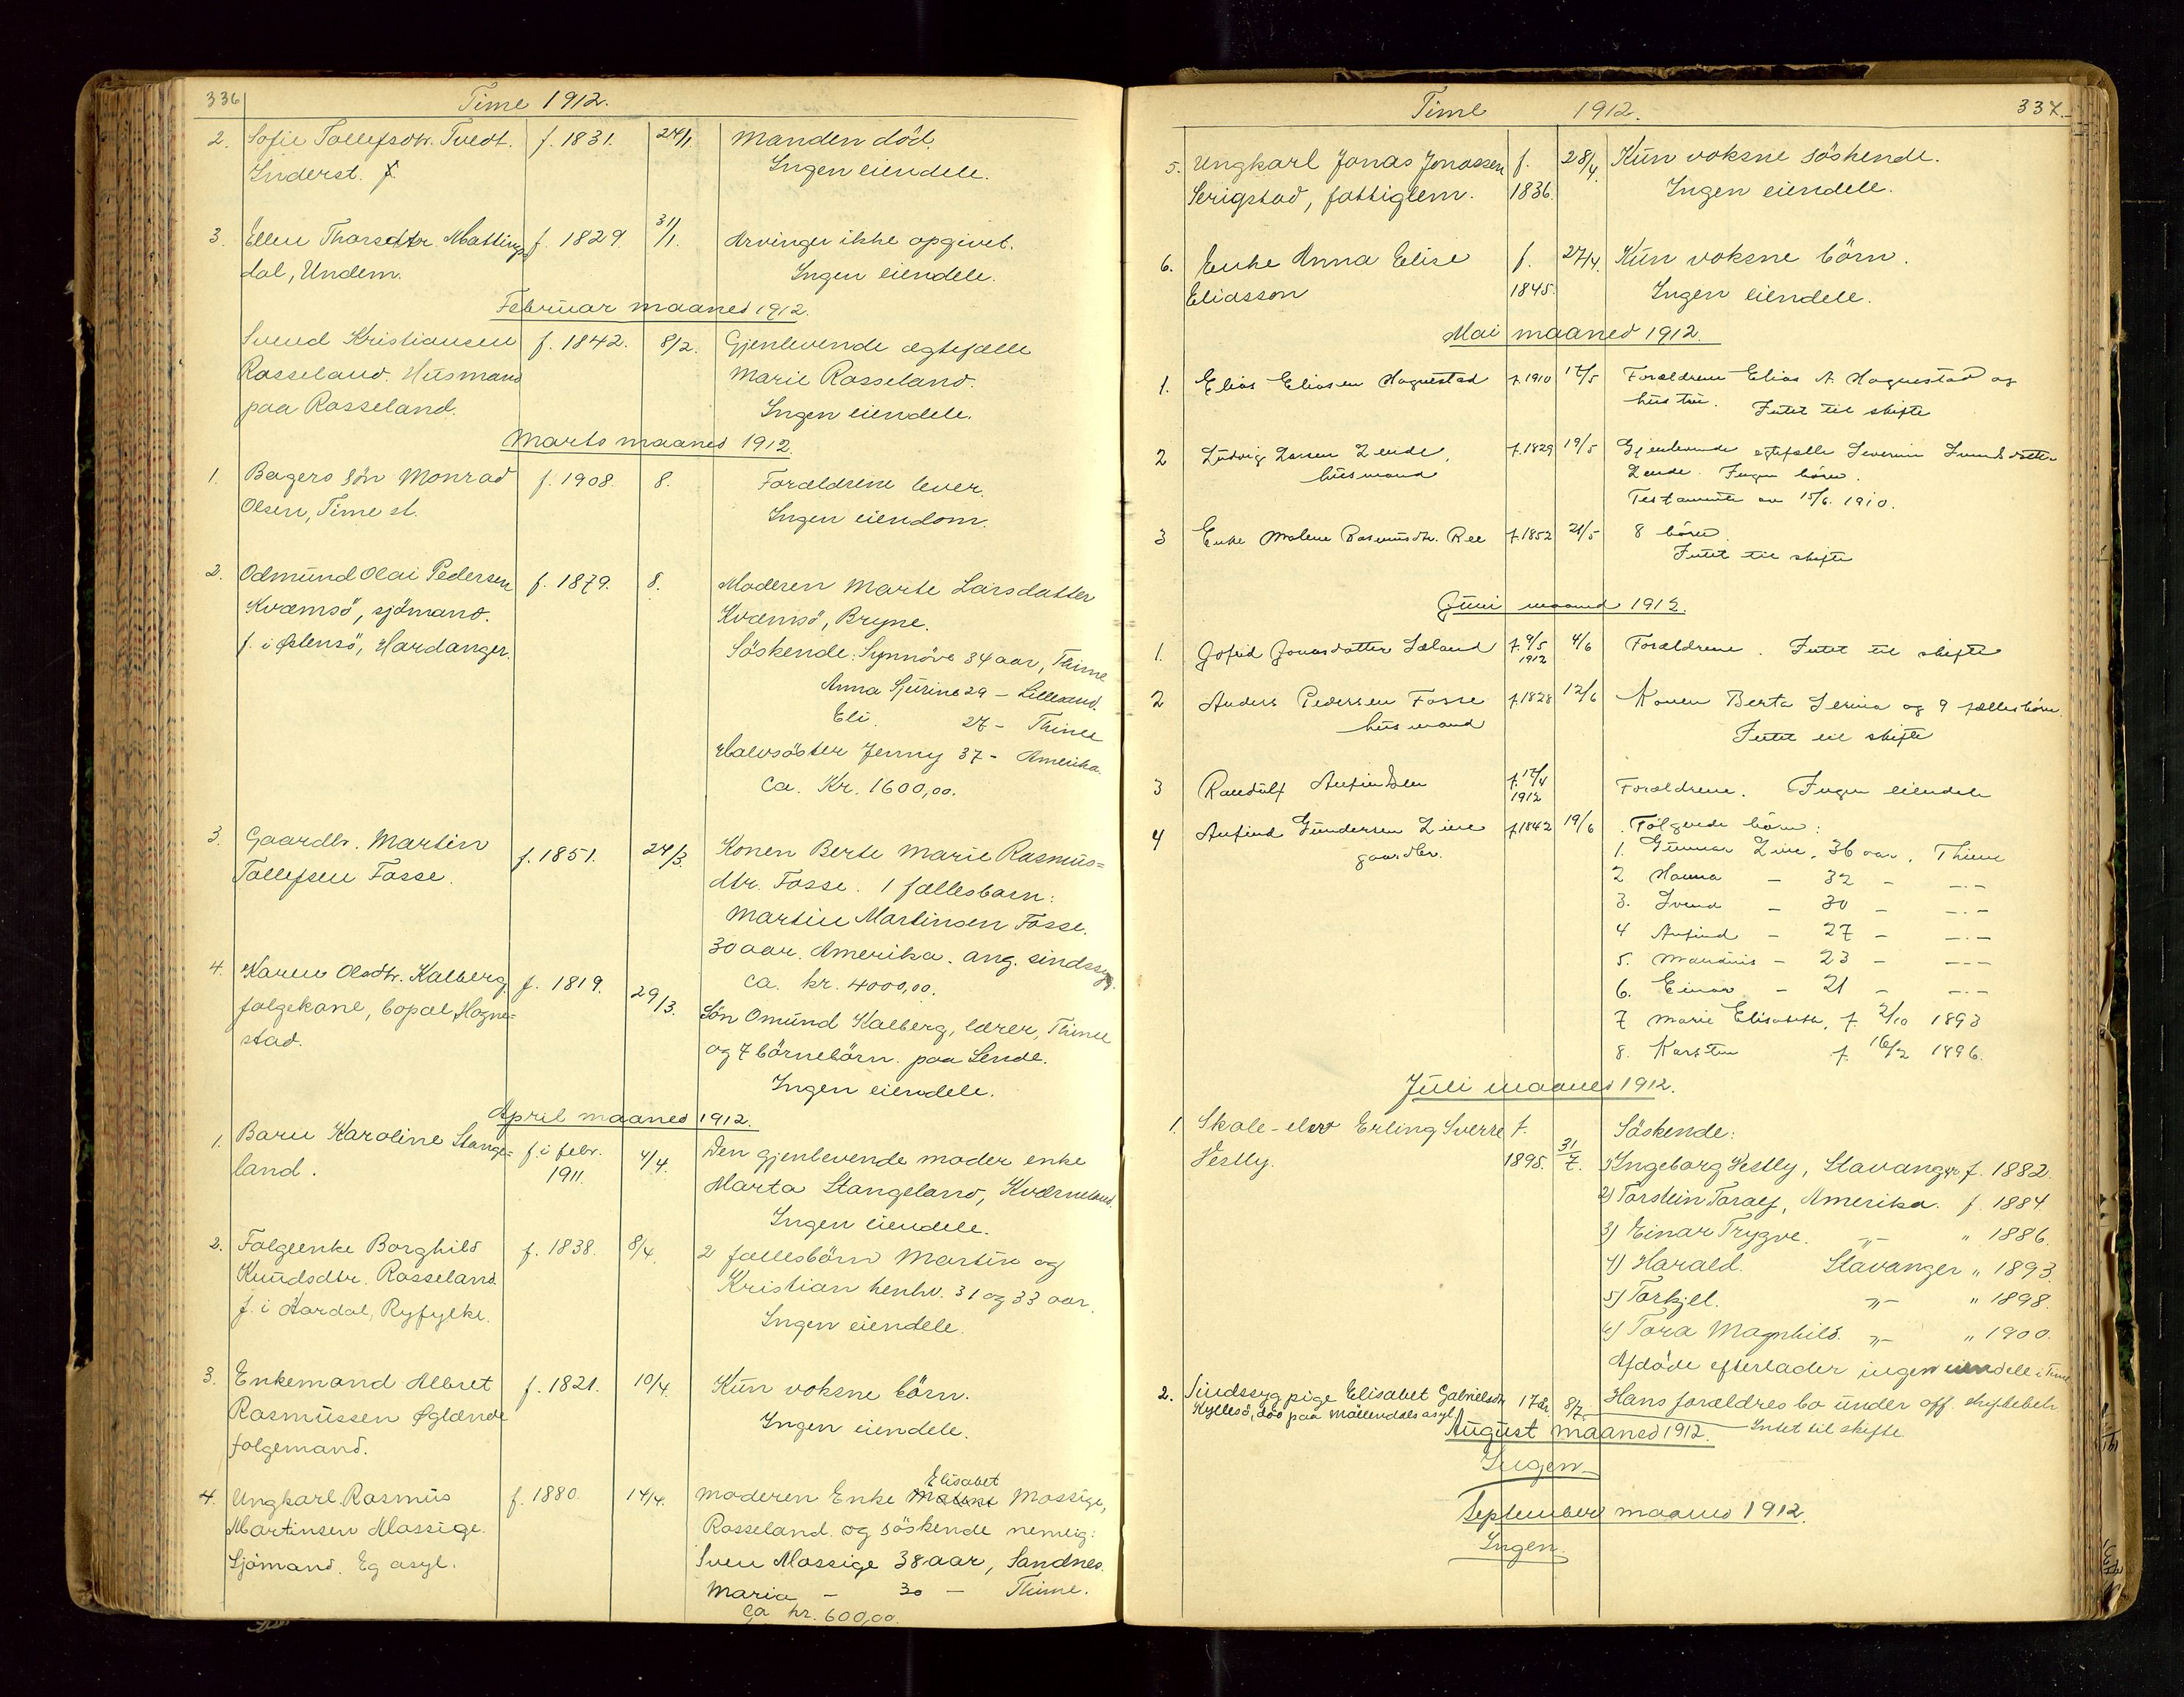 336
Time 1912.
2. Sofie Tollefsdtr. Tvedt. f. 1831. 24/1 Manden död.
Inderst. Ingen eiendele.
3. Ellen Thorsdtr. Mattings= f. 1829. 31/1. Arvinger ikke opgivet.
dal, Underm. Ingen eiendele.
Februar maaned 1912.
Svend Kristiansen f. 1842. 8/2. Gjenlevende ægtefælle
Rosseland. Husmand Marie Rosseland.
paa Rosseland. Ingen eiendele.
Marts maaned 1912.
1. Bagers sön Monrad f. 1908. 8. Forældrene lever.
Olsen, Time st. Ingen eiendom.
2. Odmund Olai Pedersen f. 1879. 8. Moderen Marte Larsdatter
Kvamsö, sjömand. Kvamsö, Bryne.
f. i Østensö, Hardanger. Söskende: Synnöve 34 aar, Thime
Anna Sjurine 29 - Lillesand.
Eli. 27 - Thime
Halvsöster Jenny 37 - Amerika.
Ca. Kr. 1600,00.
3. Gaardbr. Martin f. 1851. 24/3 Konen Berte Marie Rasmus=
Tollefsen Fosse. dtr. Fosse. 1 fællesbarn:
Martin Martinsen Fosse.
30 aar. Amerika. ang. sindssyg.
Ca. kr. 4000,00.
4. Karen Olsdtr. Kalberg, f. 1819. 29/3. Sön Omund Kalberg, lærer, Thime
folgekone, bopæl Hogne= og 7 börnebörn. paa Lende.
stad. Ingen eiendele.
April maaned 1912.
1. Barn Karoline Stange= f. i febr. 4/4. Den gjenlevende moder enke
land. 1911. Marta Stangeland, Kværneland.
Ingen eiendele.
2. Folgeenke Borghild f. 1838. 8/4. 2 fællesbörn Martin og
Knudsdtr. Rosseland. Kristian henhv. 31 og 33 aar.
f. i Aardal, Ryfylke. Ingen eiendele.
3. Enkemand Albret f. 1821. 10/4. Kun voksne börn.
Rasmussen Øglænde Ingen eiendele.
folgemand.
4. Ungkarl Rasmus f. 1880. 14/4. Moderen Enke Elisabet Mossige,
Martinsen Mossige. Rosseland. og söskende nemlig:
Sjömand. Eg asyl. Sven Mossige 38 aar, Sandnes.
Maria - 30 - Thime.
Ca kr. 600,00.
Time 1912. 337.
5. Ungkarl Jonas Jonassen f. 28/4. Kun voksne söskende.
Serigstad, fattiglem. 1836. Ingen eiendele.
6. Enke Anna Elise f. 27/4. Kun voksne börn.
Eliasson 1845. Ingen eiendele.
Mai maaned 1912.
1. Elias Eliasen Hognestad f. 1910 17/5 Forældrene Elias A. Hognestad og
hustru. Intet til skifte
2 Ludvig Larsen Lende, f. 1829 19/5 Gjenlevende egtefælle Severine
husmand Lende. Ingen börn.
Testamente av 15/6. 1910.
3 Enke Malene Rasmusdtr. Ree f. 1852 21/5 8 börn.
Intet til skifte
Juni maaned 1912.
1. Gofrid Jonasdatter Læland f. 9/5 1912 4/6 Forældrene. Intet til skifte
2 Anders Pedersen Fosse f. 1828 12/6 Konen Berta Serina og 9 fællesbörn.
husmand Intet til skifte
3 Randulf f. 17/4 1912 Forældrene. Ingen eiendele
4 Anfind Gundersen Line f. 1842 19/6 Fölgende börn:
gaardbr. 1. Gunnar Line, 36 aar, Thime
2 Hanna - 32 - -.-
3. Svend - 30 - -.-
4 Anfind - 27 - -.-
5. Maudius - 23 - -.-
6. Einar - 21 - -.-
7 Marie Elisabeth, f. 2/10 1893
8. Karsten f. 16/2 1896.
Juli maaned 1912.
1. Skole-elev Erling Sverre f. 31/7. Söskende:
Vestly. 1895. 1) Ingeborg Vestly, Stavanger f. 1882.
2) Torstein Toralf, Amerika. f. 1884
3) Einar Trygve. -"- " 1886.
4) Harald. Stavanger " 1893.
5) Torkjel. -"- " 1898.
6) Tora Magnhild. -"- " 1900.
Afdöde efterlader ingen eiendele i Time
Hans forældres bo under off. skiftebeh
2. Sindssyg pige Elisabet Gabrielsdtr 8/7
död paa Möllendals asyl Intet til skifte
August maaned 1912.
Ingen
September maaned 1912.
Ingen.